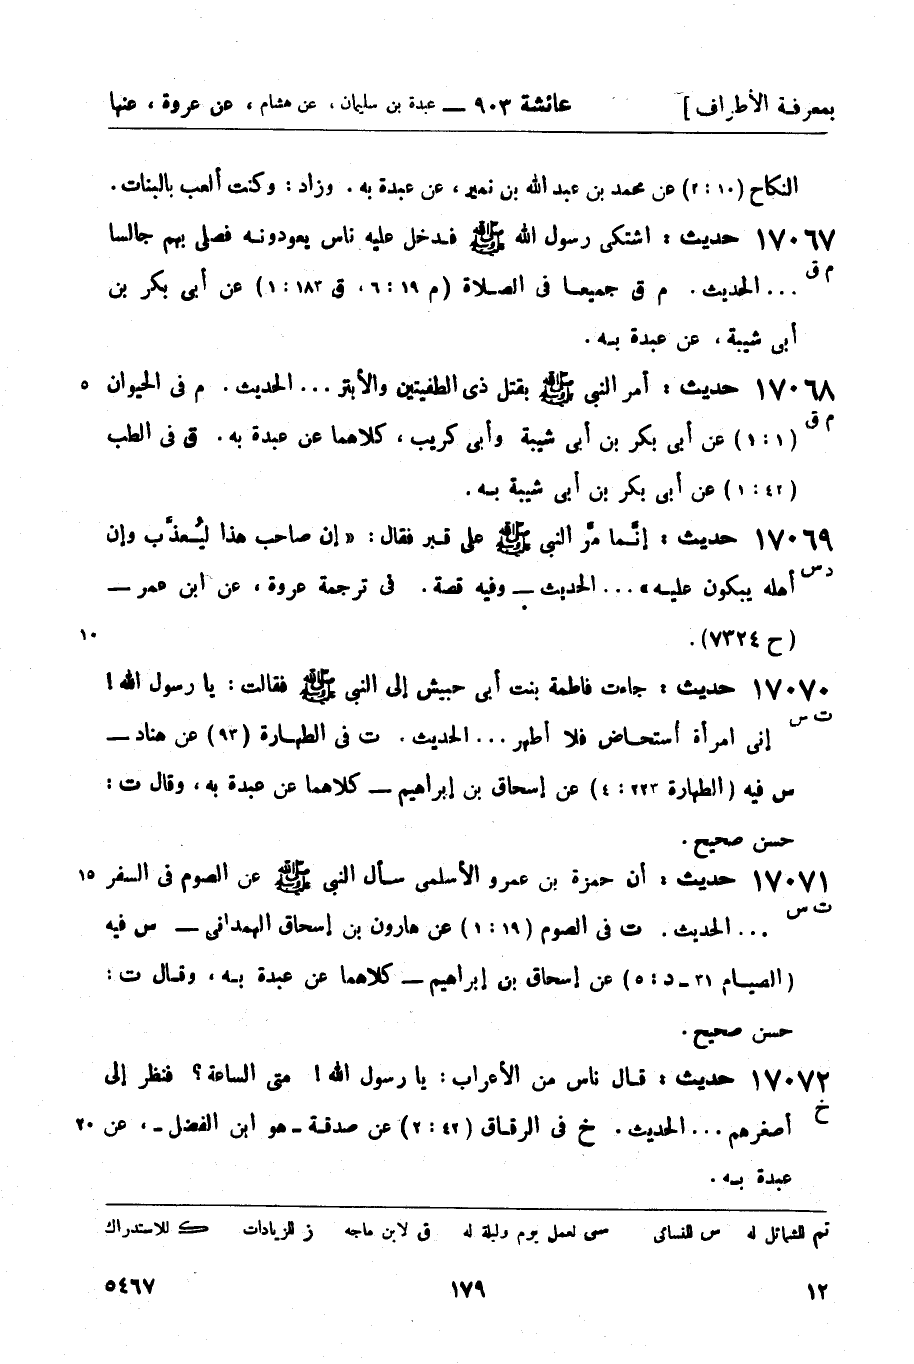 بمعرفة الأطراف] عائشة ٩٠٣ — عبدة بن سليمان ، عن هشام ، عن عروة ، عنها
النكاح (١٠ : ٢) عن محمد بن عبد الله بن نمير ، عن عبدة به . وزاد : وكنت ألعب بالبنات .
١٧٠٦٧ حديث : اشتكى رسول الله ﷺ فدخل عليه ناس يعودونه فصلى بهم جالسا
م ق
... الحديث . م ق جميعا فى الصلاة (م ١٩ : ٦ ، ق ١٨٣ : ١) عن أبى بكر بن
أبى شيبة ، عن عبدة به .
١٧٠٦٨ حديث : أمر النبي ﷺ بقتل ذى الطفيتين والأبتر ... الحديث . م فى الحيوان ٥
م ق
(١ : ١) عن أبى بكر بن أبى شيبة وأبى كريب ، كلاهما عن عبدة به . ق فى الطب
(٤٢ : ١) عن أبى بكر بن أبى شيبة به .
١٧٠٦٩ حديث : إنَّما مرَّ النبي ﷺ على قبر فقال : «إن صاحب هذا ليُعذَّب وإن
د س
أهله يبكون عليه» ... الحديث — وفيه قصة . فى ترجمة عروة ، عن ابن عمر —
(ح ٧٣٢٤) . ١٠
١٧٠٧٠ حديث : جاءت فاطمة بنت أبى حبيش إلى النبي ﷺ فقالت : يا رسول الله !
ت س
إنى امرأة أستحاض فلا أطهر ... الحديث . ت فى الطهارة (٩٣) عن هناد —
س فيه (الطهارة ٢٢٣ : ٤) عن إسحاق بن إبراهيم — كلاهما عن عبدة به ، وقال ت :
حسن صحيح .
١٧٠٧١ حديث : أن حمزة بن عمرو الأسلمى سأل النبي ﷺ عن الصوم فى السفر ١٥
ت س
... الحديث . ت فى الصوم (١٩ : ١) عن هارون بن إسحاق الهمدانى — س فيه
(الصيام ٣١ - د : ٥) عن إسحاق بن إبراهيم — كلاهما عن عبدة به ، وقال ت :
حسن صحيح .
١٧٠٧٢ حديث : قال ناس من الأعراب : يا رسول الله ! متى الساعة ؟ فنظر إلى
خ
أصغرهم ... الحديث . خ فى الرقاق (٤٢ : ٢) عن صدقة - هو ابن الفضل - ، عن ٢٠
عبدة به .
تم للشمائل له س للنسائى سى لعمل يوم وليلة له ق لابن ماجه ز للزيادات ك للاستدراك
١٢ ١٧٩ ٥٤٦٧